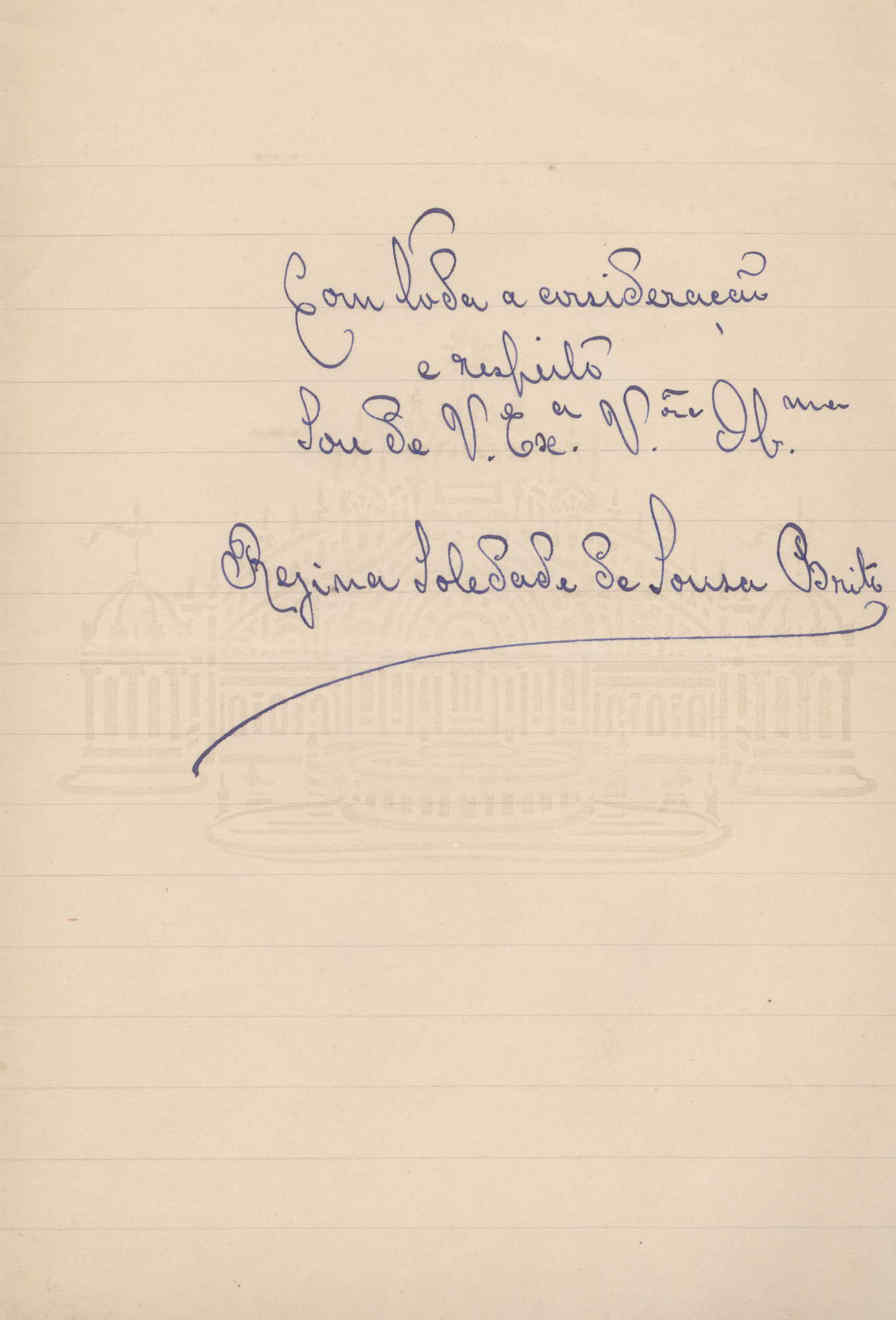 Com toda a cosideração
e respeito
Sou de V. Exª. V.ᵒʳᵃ Ob.ᵐᵃ
Regina Soledade de Sousa Brito